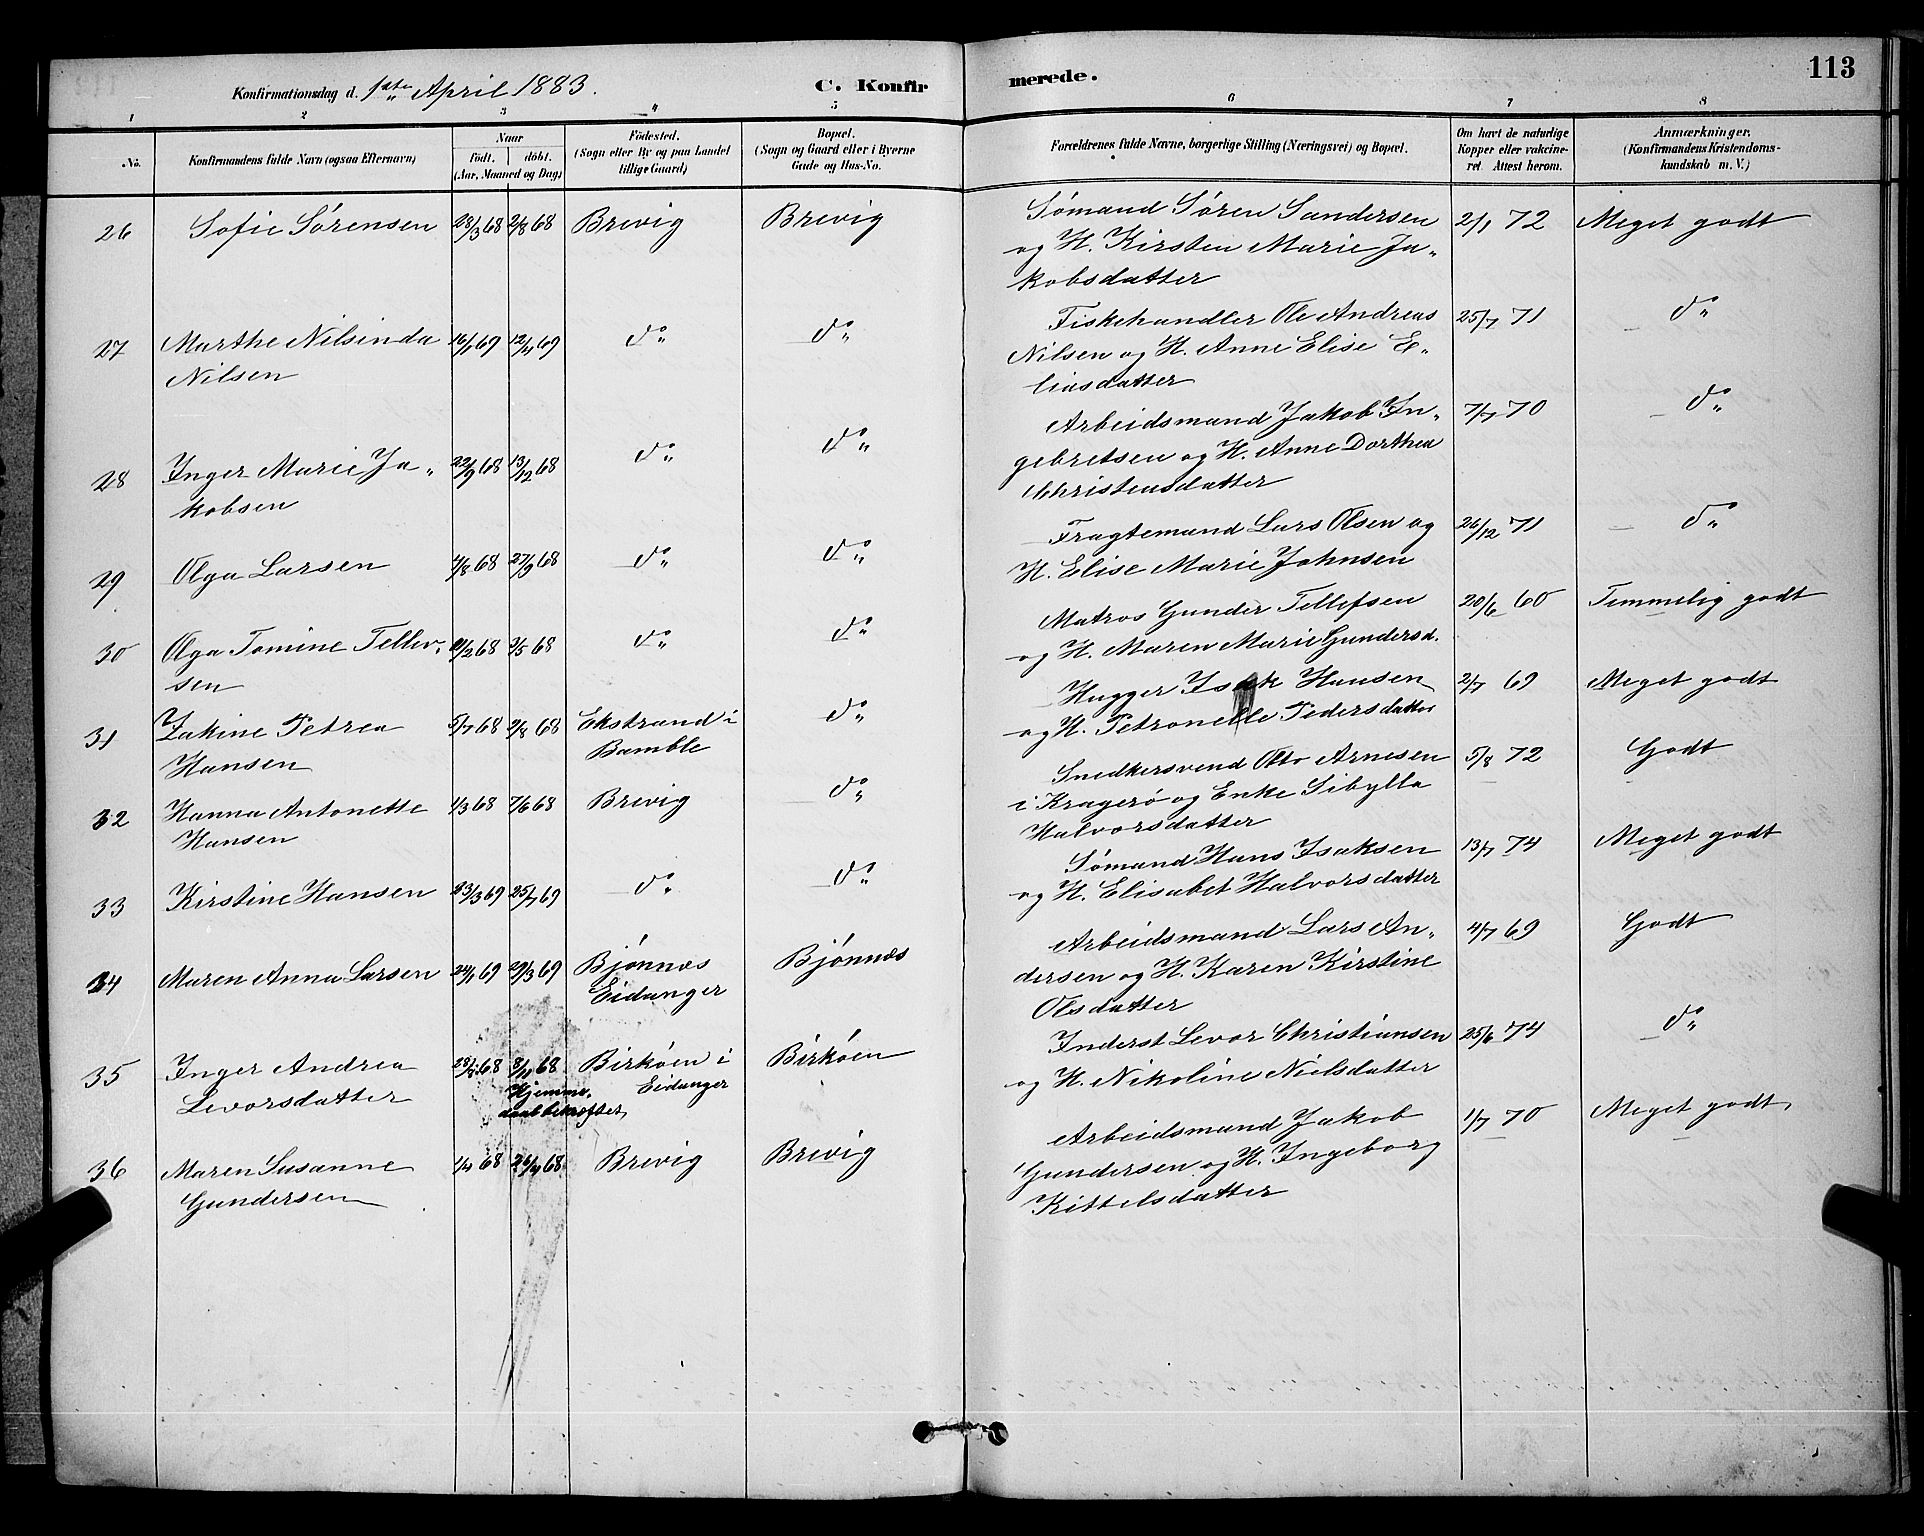 113
Konfirmationsdag d. 1ste April 1883.
C. Konfirmerede.
1 2 3 4 5 6 7 8
No. Konfirmandens fulde Navn (ogsaa Efternavn) Naar født. døbt. (Aar, Maaned og Dag) Fødested. (Sogn eller By og paa Landet tillige Gaard) Bopæl. (Sogn og Gaard eller i Byerne Gade og Hus-No. Forældrenes fulde Navne, borgerlige Stilling (Næringsvei) og Bopæl. Om havt de naturlige Kopper eller vakcineret. Attest herom. Anmærkninger. (Konfirmandens Kristendomskundskab m. V.)
26 Sofie Sørensen 28/3 68 2/8 68 Brevig Brevig Sømand Søren Sandersen 2/1 72 Meget godt
og H. Kirsten Marie Ja„
kobsdatter
27 Marthe Nilsinda 16/1 69 12/4 69 do do Fiskehandler Ole Andreas 25/7 71 do
Nilsen Nilsen og H. Anne Elise E„
liasdatter
28 Inger Marie Ja„ 22/9 68 13/12 68 do do Arbeidsmand Jakob In„ 7/7 70 do
kobsen gebretsen og H. Anne Dorthea
Christensdatter
29 Olga Larsen 4/8 68 27/9 68 do do Fragtemand Lars Olsen og 26/12 71 do
H. Elise Marie Johnsen
30 Olga Tomine Tellev„ /2 68 3/5 68 do do Matros Gunder Tellefsen 20/6 60 Temmelig godt
sen og H. Maren Marie Gundersd.
31 Zakine Petrea 5/7 68 2/8 68 Ekstrand i do Hugger Isak Hansen 2/7 69 Meget godt
Hansen Bamble og H. Petronelle Pedersdatter
32 Hanna Antonette 1/3 68 7/6 68 Brevig do Snedkersvend Otto Arnesen 5/8 72 Godt
Hansen i Kragerø og Enke Sibylla
Halvorsdatter
33 Kirstine Hansen 23/3 69 25/7 69 do do Sømand Hans Isaksen 13/7 74 Meget godt
og H. Elisabet Halvorsdatter
34 Maren Anna Larsen 24/1 69 29/3 69 Bjønnes Bjønnes Arbeidsmand Lars An„ 4/7 69 Godt
Eidanger dersen og H. Karen Kirstine
Olsdatter
35 Inger Andrea 28/8 68 8/11 68 Birkøen i Birkøen Inderst Levor Christiansen 25/6 74 do
Levorsdatter Hjemme„ Eidanger og H. Nikoline Nielsdatter
daab bekræftet
36 Maren Susanne 1/4 68 26/4 68 Brevig Brevig Arbeidsmand Jakob 1/7 70 Meget godt
Gundersen Gundersen og H. Ingeborg
Kittelsdatter